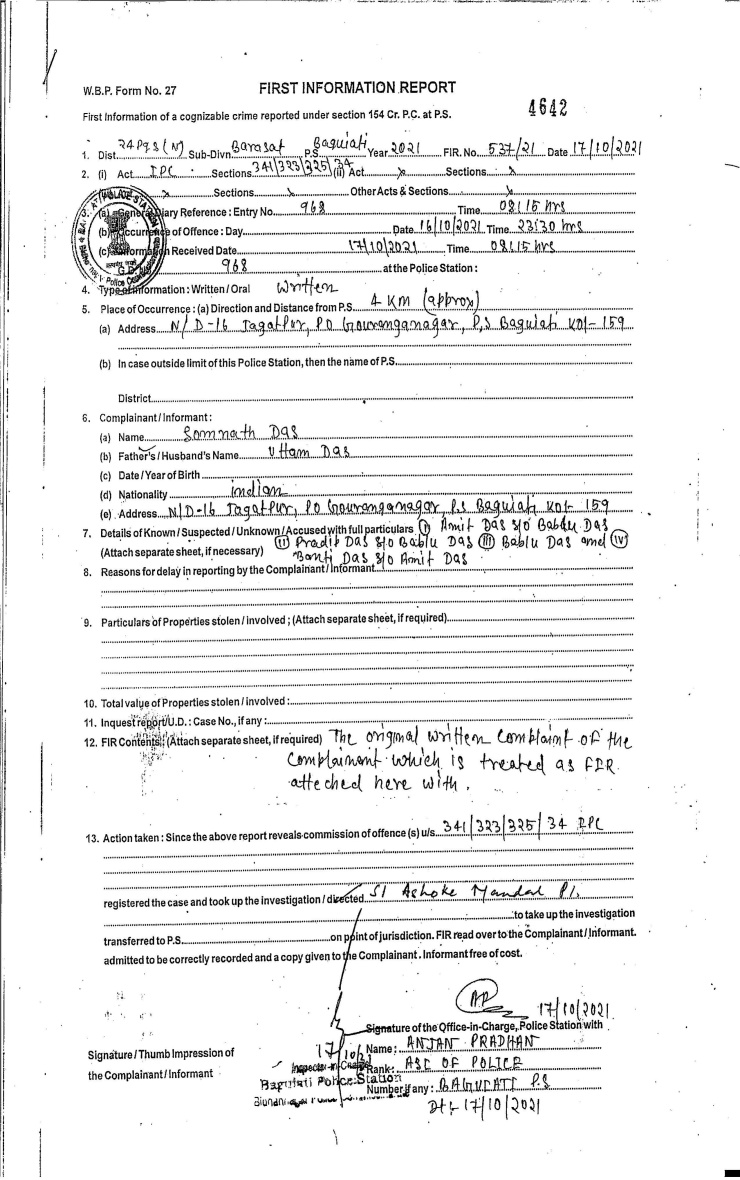 W.B.P. Form No. 27
FIRST INFORMATION REPORT
4642
First Information of a cognizable crime reported under section 154 Cr. P.C. at P.S.
1. Dist. 24 Pgs (N) Sub-Divn. Barasat P.S. Baguiati Year 2021 FIR. No. 537/21 Date 17/10/2021
2. (i) Act IPC Sections 341/323/325/34 (ii) Act x Sections x
x Sections x Other Acts & Sections x
3. (a) General Diary Reference : Entry No. 968 Time 08:15 hrs
(b) Occurrence of Offence : Day Date 16/10/2021 Time 23:30 hrs
(c) Information Received Date 17/10/2021 Time 08:15 hrs
968 at the Police Station :
4. Type of Information : Written / Oral Written
5. Place of Occurrence : (a) Direction and Distance from P.S. 4 KM (approx)
(a) Address N/D-16 Jagatpur, PO Gouranganagar, P,S Baguiati Kol- 159
(b) In case outside limit of this Police Station, then the name of P.S.
District
6. Complainant / Informant :
(a) Name Somnath Das
(b) Father's / Husband's Name Uttam Das
(c) Date / Year of Birth
(d) Nationality indian
(e) Address N/D-16 Jagatpur, PO Gouranganagar, P.S Baguiati Kol- 159
7. Details of Known / Suspected / Unknown / Accused with full particulars (i) Amit Das S/O Bablu Das
(Attach separate sheet, if necessary) (ii) Pradip Das S/O Bablu Das (iii) Bablu Das and (iv)
Banti Das S/O Amit Das
8. Reasons for delay in reporting by the Complainant / Informant
9. Particulars of Properties stolen / involved ; (Attach separate sheet, if required)
10. Total value of Properties stolen / involved :
11. Inquest report/U.D. : Case No., if any :
12. FIR Contents : (Attach separate sheet, if required) The original written Complaint of the
Complainent which is treated as FIR
atteched here with.
13. Action taken : Since the above report reveals commission of offence (s) u/s 341/323/325/34 IPC
registered the case and took up the investigation / directed SI Ashoke Mandal P1.
to take up the investigation
transferred to P.S. on point of jurisdiction. FIR read over to the Complainant / Informant.
admitted to be correctly recorded and a copy given to the Complainant. Informant free of cost.
17/10/2021
Signature of the Office-in-Charge, Police Station with
Signature / Thumb Impression of
the Complainant / Informant
17/10/2
Inspector-in-Charge
Baguiati Police Station
Name : ANJAN PRADHAN
Rank : ASI OF POLICE
Number if any : BAGUIATI P.S
Dt- 17/10/2021